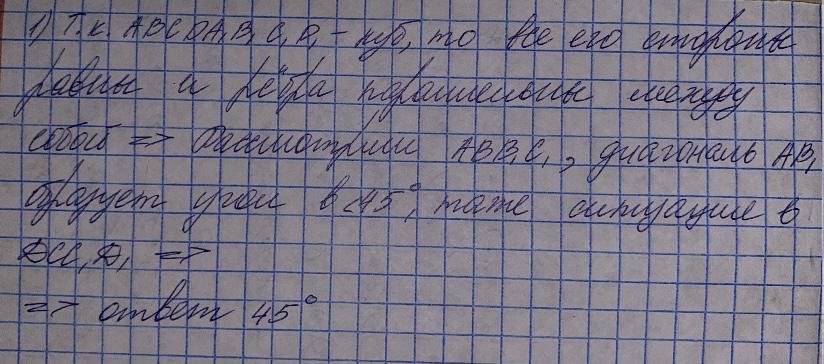 1) Т.к. ABCDA₁B₁C₁D₁ - куб, то все его стороны
равны и рёбра параллельны между
собой => Рассмотрим ABB₁C₁, диагональ AB₁
образует угол в 45°, таже ситуация в
DCC₁D₁ =>
=> ответ 45°